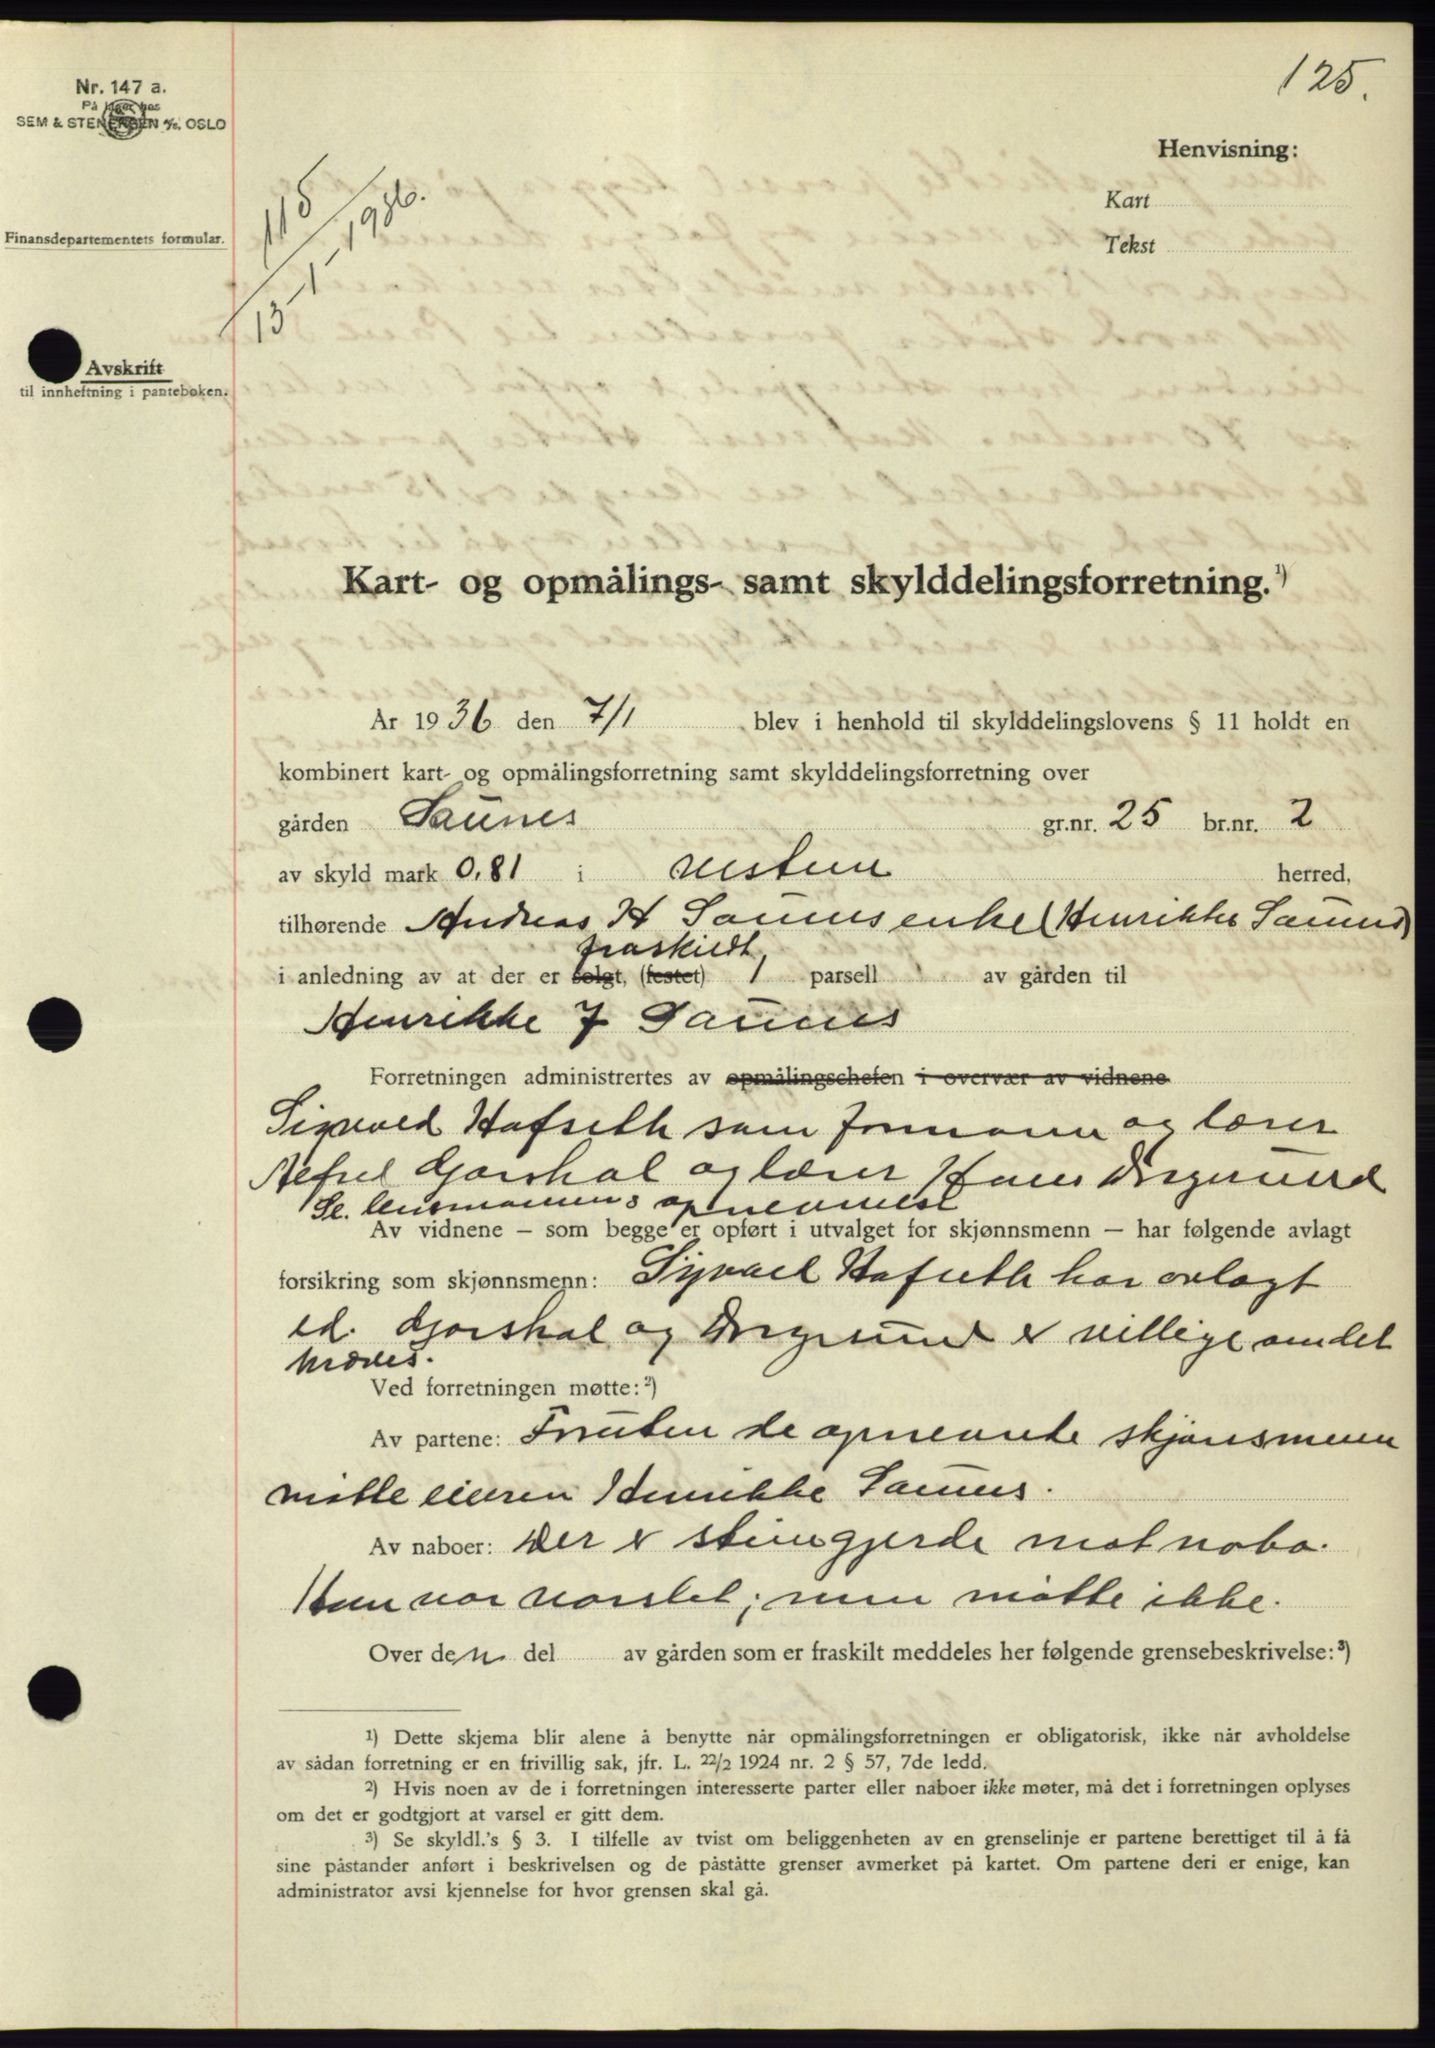 125.
Nr. 147 a.
På lager hos
SEM & STENERSEN A/S. OSLO
Henvisning:
Kart
Tekst
115/1936.
13-1
Finansdepartementets formular.
Avskrift
til innheftning i panteboken.
Kart- og opmålings- samt skylddelingsforretning.¹)
År 1936 den 7/1 blev i henhold til skylddelingslovens § 11 holdt en
kombinert kart- og opmålingsforretning samt skylddelingsforretning over
gården Saunes gr.nr. 25 br.nr. 2
av skyld mark 0,81 i herred,
tilhørende Andreas H Saunes enke (Henrikke Saunes)
fraskildt,
i anledning av at der er solgt, (festet) 1 parsell av gården til
Henrikke J Saunes
Forretningen administrertes av opmålingschefen i overvær av vidnene
Sigvald Hafseth som formann og lærer
Alfred Gjørskal og lærer Hans
Se. lensmannens opnevnelse
Av vidnene – som begge er opført i utvalget for skjønnsmenn – har følgende avlagt
forsikring som skjønnsmenn: Sigvald Hafseth har avlagt
ed. Gjørskal og er villige om det
kræves.
Ved forretningen møtte:²)
Av partene: Foruten de opnevnte skjønsmenn
møtte eieren Henrikke Saunes.
Av naboer: Der er steingjerde mot nabo.
Han var varslet; men møtte ikke.
Over den del av gården som er fraskilt meddeles her følgende grensebeskrivelse:³)
¹) Dette skjema blir alene å benytte når opmålingsforretningen er obligatorisk, ikke når avholdelse
av sådan forretning er en frivillig sak, jfr. L. 22/2 1924 nr. 2 § 57, 7de ledd.
²) Hvis noen av de i forretningen interesserte parter eller naboer ikke møter, må det i forretningen oplyses
om det er godtgjort at varsel er gitt dem.
³) Se skyldl.'s § 3. I tilfelle av tvist om beliggenheten av en grenselinje er partene berettiget til å få
sine påstander anført i beskrivelsen og de påståtte grenser avmerket på kartet. Om partene deri er enige, kan
administrator avsi kjennelse for hvor grensen skal gå.